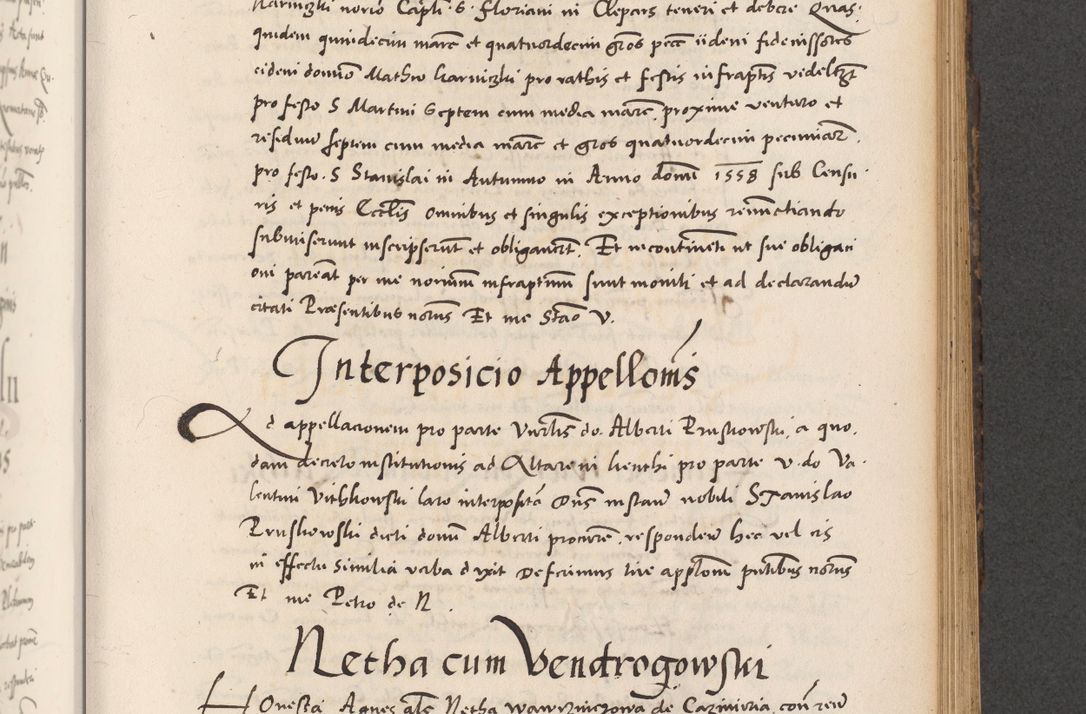 Karniczki norio Capli S. Floriani in Clepars teneri et debere Quas
quidem quindecim marc et quatuordecim gros pecc iideni fideiussores
eidem domino Matheo Karniczki pro rathis et festis infraptis vedelczt
pro festo S Martini Septem cum media marc. proxime venturo et
residuu septem cum media marc et gros quatuordecim pecuniar.
pro festo. S Stanislai in Autumno in Anno domi 1558 sub Censu
ris et penis Ecclis omnibus et singulis exceptionibus renunctiando
submiserunt inscripserut et obligaverut. Et incontineti ut sue obligati
oni pareat per me norium infraptum sunt moniti et ad declarandu
citati Præsentibus notus Et me Stao V.
Interposicio Appellonis
Ad appellationem pro parte Vnrlis do. Alberti Pruskowski, a quo.
dam decreto institutionis ad Altare in Kenthi pro parte v. do Va
lentini Vithkowski lato interposita Dns instan nobili Stanislao
Pruskowski dicti domi Alberti procure. responden hec vel eis
in effectu similia verba dixit Deferimus tue applom pntibus notus
Et me Petro de N.
Netha cum Vendrogowski
Honesta Agnes als Netha Wawrzinczowa de Cazmiria, con reu